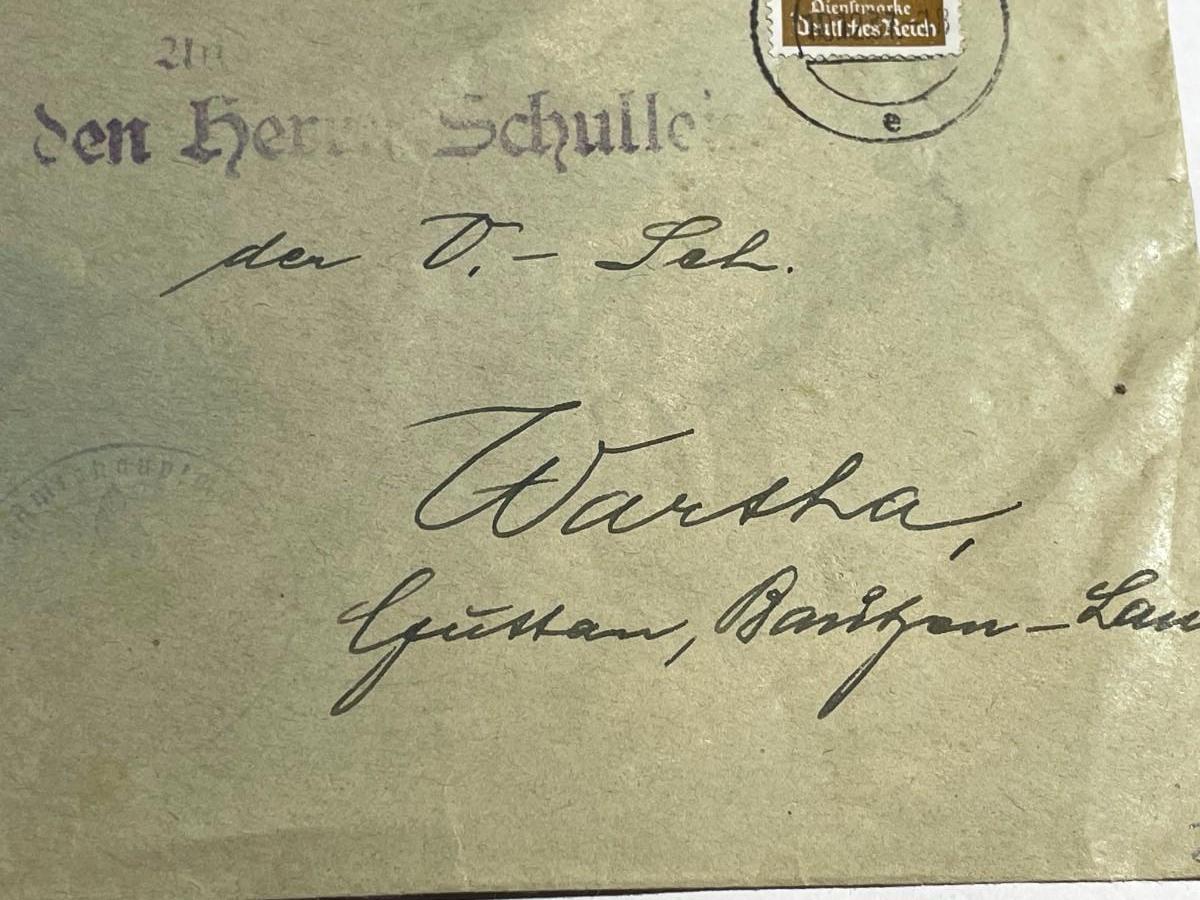 Dienstmarke
Deutsches Reich
e
An
den Herrn Schullei
der V.- Sch.
Wartha,
Guttau, Bautzen-Lan